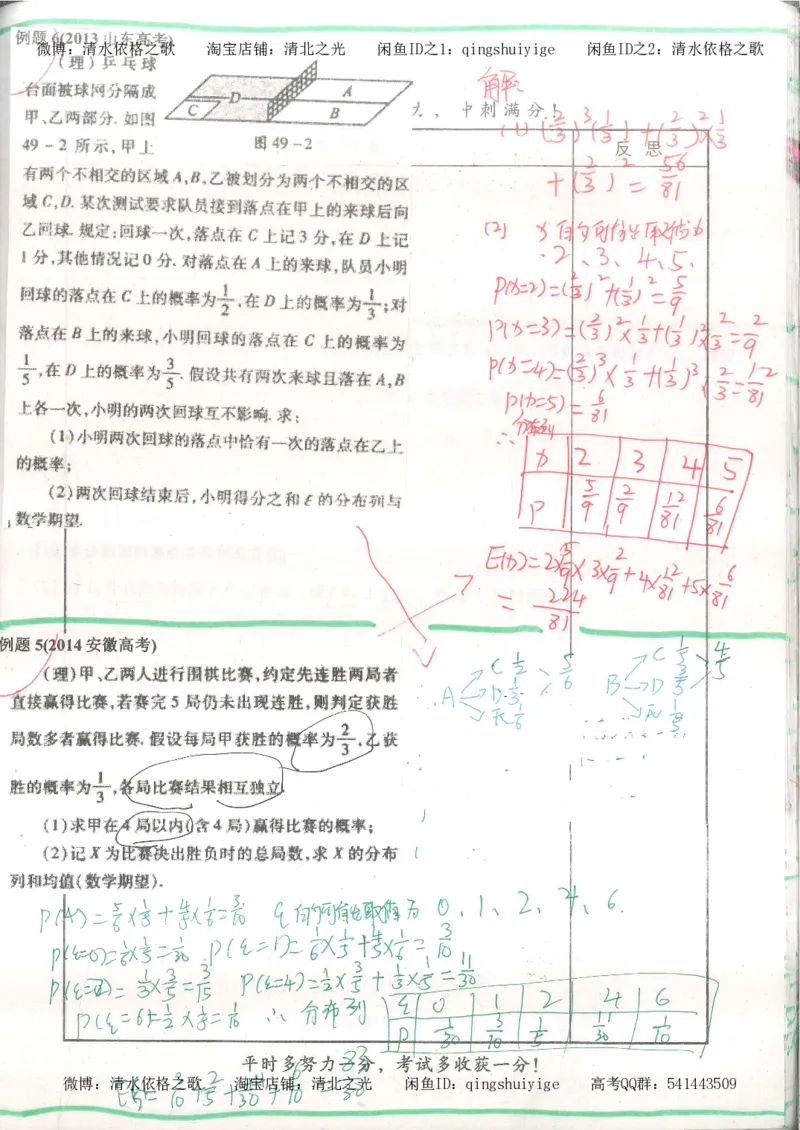 例题 6(2013 山东高考)
微博：清水依格之歌 淘宝店铺：清北之光 闲鱼ID之1：qingshuiyige 闲鱼ID之2：清水依格之歌
(理)乒乓球
台面被球网分隔成
甲、乙两部分. 如图
49－2 所示,甲上
A
B
C
D
图 49－2
有两个不相交的区域 A,B,乙被划分为两个不相交的区
域 C,D. 某次测试要求队员接到落点在甲上的来球后向
乙回球. 规定:回球一次,落点在 C 上记 3 分,在 D 上记
1 分,其他情况记 0 分. 对落点在 A 上的来球,队员小明
回球的落点在 C 上的概率为 1/2 ,在 D 上的概率为 1/3 ;对
落点在 B 上的来球,小明回球的落点在 C 上的概率为
1/5 ,在 D 上的概率为 3/5 . 假设共有两次来球且落在 A,B
上各一次,小明的两次回球互不影响. 求:
(1)小明两次回球的落点中恰有一次的落点在乙上
的概率;
(2)两次回球结束后,小明得分之和 ξ 的分布列与
数学期望.
冲刺满分！
反 思
解
(1) (2/3)³(1/3)+(2/3)²×1/3
+(2/3)²=56/81
(2) x 的可能取值为
2、3、4、5、
P(x=2)=(2/3)²+(1/3)²=5/9
P(x=3)=(2/3)²×1/3+(1/3)²×2/3=2/9
P(x=4)=(2/3)³×1/3+(1/3)³×2/3=12/81
P(x=5)=6/81
∴分布列
x 2 3 4 5
P 5/9 2/9 12/81 6/81
E(x)=2×5/9×3×2/9+4×12/81+5×6/81
=224/81
例题 5(2014 安徽高考)
(理)甲、乙两人进行围棋比赛,约定先连胜两局者
直接赢得比赛,若赛完 5 局仍未出现连胜,则判定获胜
局数多者赢得比赛. 假设每局甲获胜的概率为 2/3 ,乙获
胜的概率为 1/3 ,各局比赛结果相互独立.
(1)求甲在 4 局以内(含 4 局)赢得比赛的概率;
(2)记 X 为比赛决出胜负时的总局数,求 X 的分布
列和均值(数学期望).
A C 1/2 5/6
D 1/3
无 1/6
B C 1/5 4/5
D 3/5
无 1/5
P(A)=5/6×1/5+4/5×1/6=3/10 ξ的可能取值为 0、1、2、4、6.
P(ξ=0)=1/6×1/5=1/30 P(ξ=1)=1/6×1/5+4/5×1/6=3/10
P(ξ=2)=1/3×3/5=3/15 P(ξ=4)=1/2×3/5+1/3×1/5=11/30
P(ξ=6)=1/2×1/5=1/10 ∴ 分布列
ξ 0 1 2 4 6
P 1/30 3/10 1/5 11/30 1/10
平时多努力一分，考试多收获一分！
微博：清水依格之歌 淘宝店铺：清北之光 闲鱼ID：qingshuiyige 高考QQ群：541443509